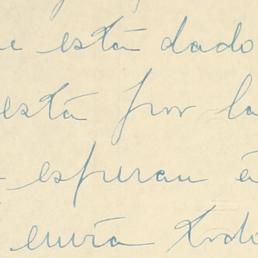 e está dado
está por la
esperan e
envía todo